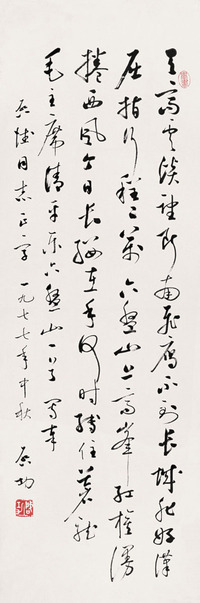 天高云淡望断南飞雁不到长城非好汉
屈指行程二万六盘山上高峰红旗漫
捲西风今日长缨在手何时缚住苍龙
毛主席清平乐六盘山一首 写奉
同志正字 一九七七年中秋 启功